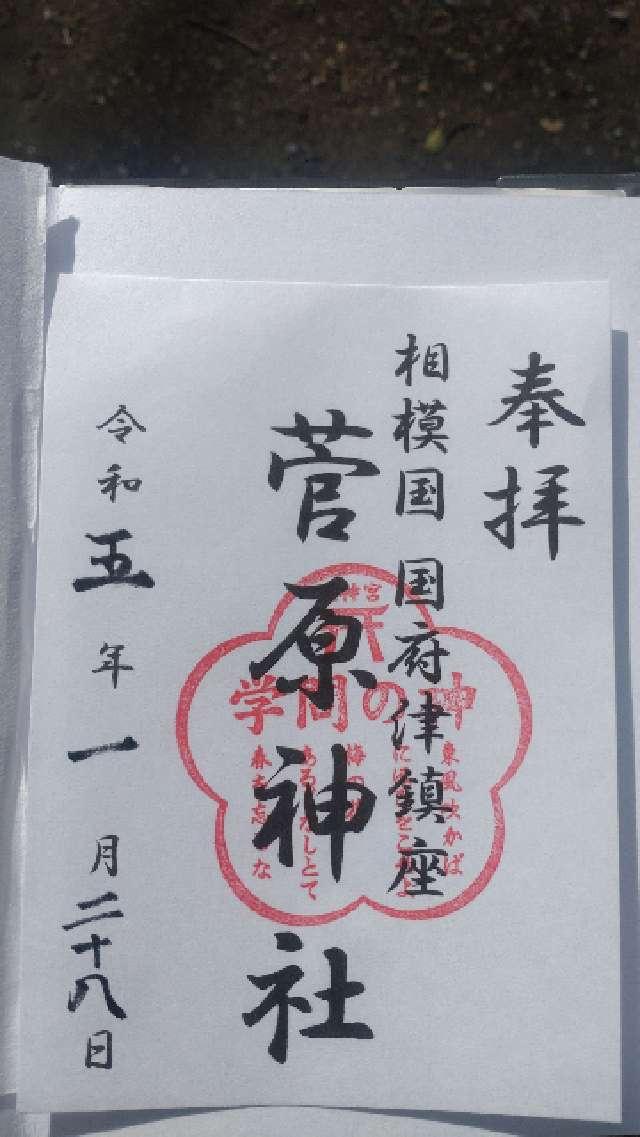 奉拝
相模国国府津鎮座
菅原神社
令和五年一月二十八日
神宮
学問の神
東風吹かば
にほひをこせよ
梅の花
あるじなしとて
春を忘るな